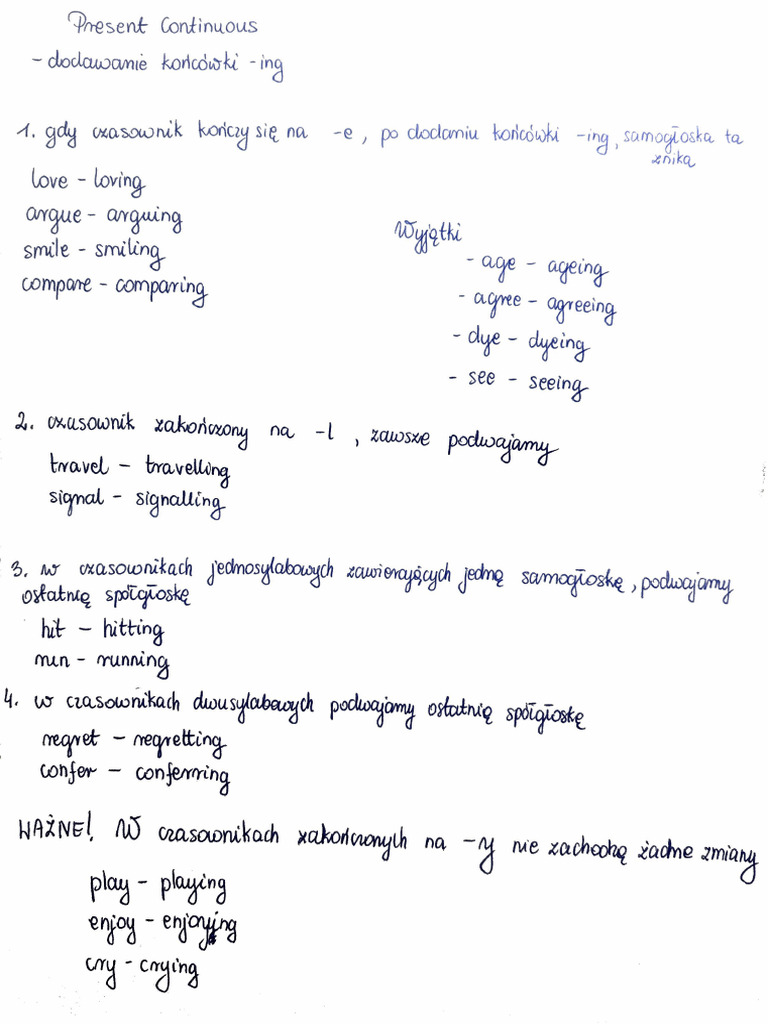 Present Continuous
- dodawanie końcówki -ing
1. gdy czasownik kończy się na -e, po dodaniu końcówki -ing, samogłoska ta
znika
love - loving
argue - arguing
smile - smiling
compare - comparing
Wyjątki
- age - ageing
- agree - agreeing
- dye - dyeing
- see - seeing
2. czasownik zakończony na -l, zawsze podwajamy
travel - travelling
signal - signalling
3. w czasownikach jednosylabowych zawierających jedną samogłoskę, podwajamy
ostatnią spółgłoskę
hit - hitting
run - running
4. w czasownikach dwusylabowych podwajamy ostatnią spółgłoskę
regret - regretting
confer - conferring
WAŻNE! W czasownikach zakończonych na -y nie zachodzą żadne zmiany
play - playing
enjoy - enjoying
cry - crying